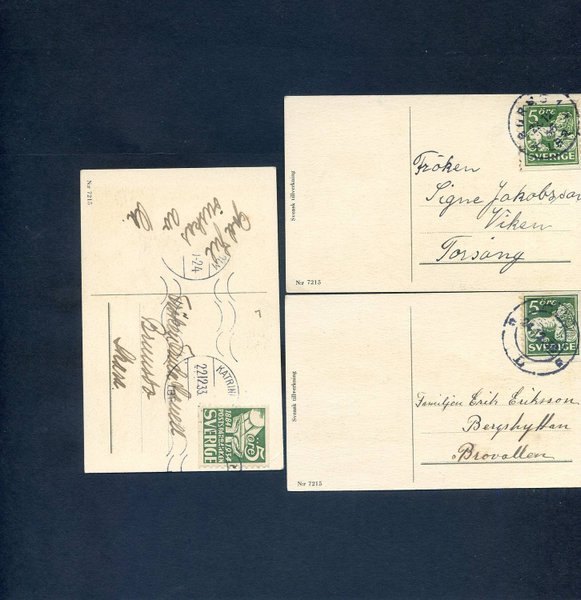 Nr 7215
God Jul
önskas av
22 12 33
KATRIN
5 öre
1884 1934
POSTSPARBANKEN
SVERIGE
Svensk tillverkning
5 öre
SVERIGE
Fröken
Signe Jakobsson
Viken
Torsång
Nr 7215
Svensk tillverkning
5 öre
SVERIGE
Familjen Erik Eriksson
Bergshyttan
Brovallen
Nr 7215